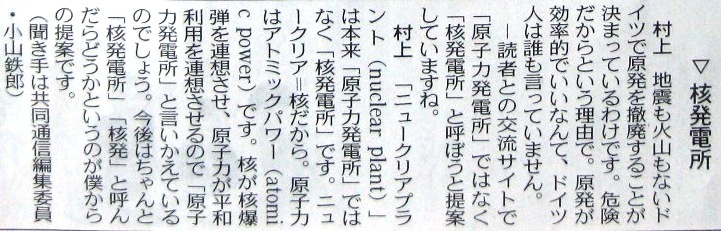 ▽ 核発電所
村上　地震も火山もないド
イツで原発を撤廃することが
決まっているわけです。危険
だからという理由で。原発が
効率的でいいなんて、ドイツ
人は誰も言っていません。
―読者との交流サイトで
「原子力発電所」ではなく
「核発電所」と呼ぼうと提案
していますね。
村上　「ニュークリアプラ
ント（nuclear plant）」
は本来「原子力発電所」では
なく「核発電所」です。ニュ
ークリア＝核だから。原子力
はアトミックパワー（atomi
c power）です。核が核爆
弾を連想させ、原子力が平和
利用を連想させるので「原子
力発電所」と言いかえている
のでしょう。今後はちゃんと
「核発電所」「核発」と呼ん
だらどうかというのが僕から
の提案です。
（聞き手は共同通信編集委員
・小山鉄郎）